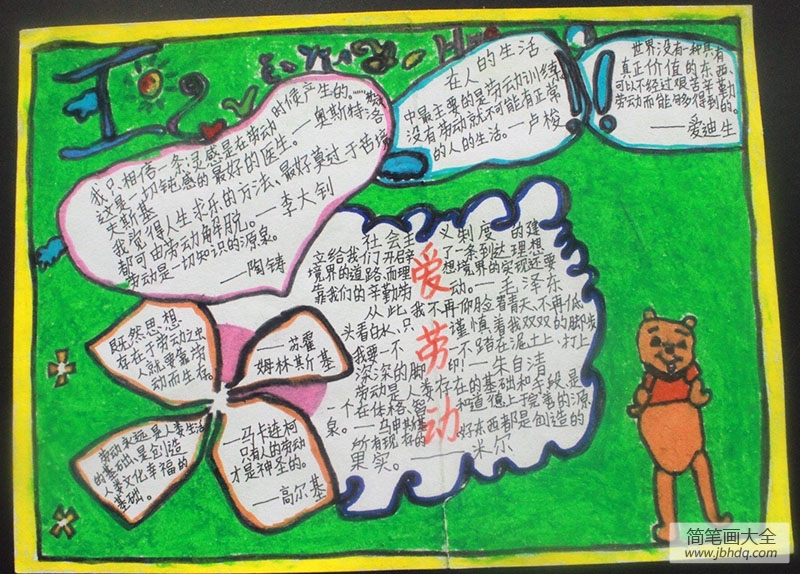 在人的生活
中最主要的是劳动训练。
没有劳动就不可能有正常
的人的生活。——卢梭
世界没有一种具有
真正价值的东西、
可以不经过艰苦辛勤
劳动而能够得到的。
——爱迪生
我只相信一条:灵感是在劳动时候产生的。
这是一切钝感的最好的医生。——奥斯特洛
夫斯基
我觉得人生求乐的方法、最好莫过于
都可由劳动解脱。——李大钊
劳动是一切知识的源泉。
——陶铸
爱劳动
社会主义制度的建
立给我们开辟了一条到达理想
境界的道路,而理想境界的实现还要
靠我们的辛勤劳动。——毛泽东
从此我不再仰脸看青天、不再低
头看白水、只谨慎着我双双的脚步
我要一不一踏在泥土上、打上
深深的脚印!——朱自清
劳动是人类存在的基础和手段、是
一个在体格、和道德上完善的源
泉。
所有现存的好东西都是创造的
果实。——米尔
既然思想
存在于劳动之中
人就要靠劳
动而生存。
——苏霍
姆林斯基
劳动永远是人类生活
的基础、是创造
人类文化幸福的
基础。
——马卡连柯
只有人的劳动
才是神圣的。
——高尔基
简笔画大全
www.jbhdq.com